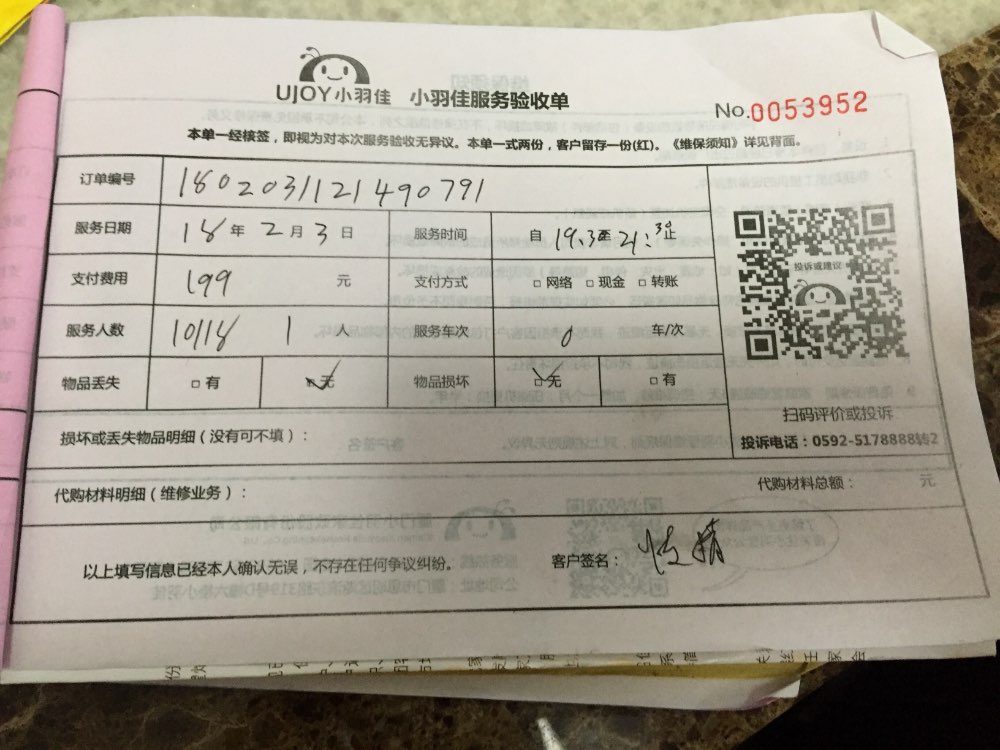 UJOY小羽佳 小羽佳服务验收单
No.0053952
本单一经核签，即视为对本次服务验收无异议。本单一式两份，客户留存一份(红)。《维保须知》详见背面。
订单编号 180203121490791
服务日期 18 年 2 月 3 日 服务时间 自 19.30至 21:30止
支付费用 199 元 支付方式 □网络 □现金 □转账
服务人数 10118 1 人 服务车次 0 车/次
物品丢失 □有 □无 物品损坏 □无 □有
投诉或建议
扫码评价或投诉
投诉电话：0592-5178888转2
损坏或丢失物品明细（没有可不填）：
代购材料明细（维修业务）： 代购材料总额： 元
以上填写信息已经本人确认无误，不存在任何争议纠纷。 客户签名：